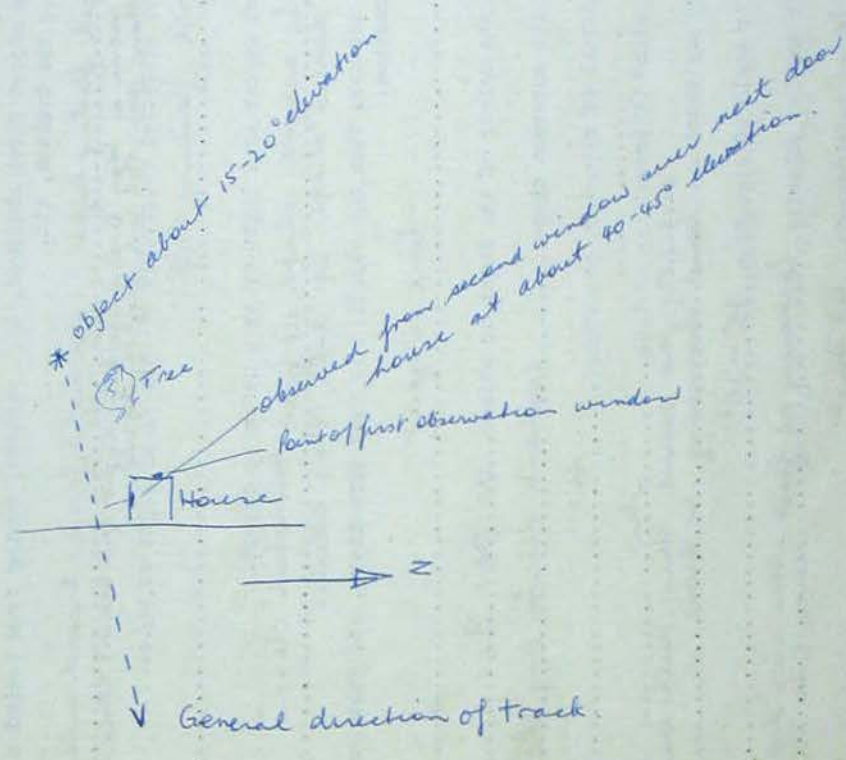 * object about 15-20° elevation
Tree
observed from second window over next door
house at about 40-45° elevation.
Point of first observation window
House
N
General direction of track.